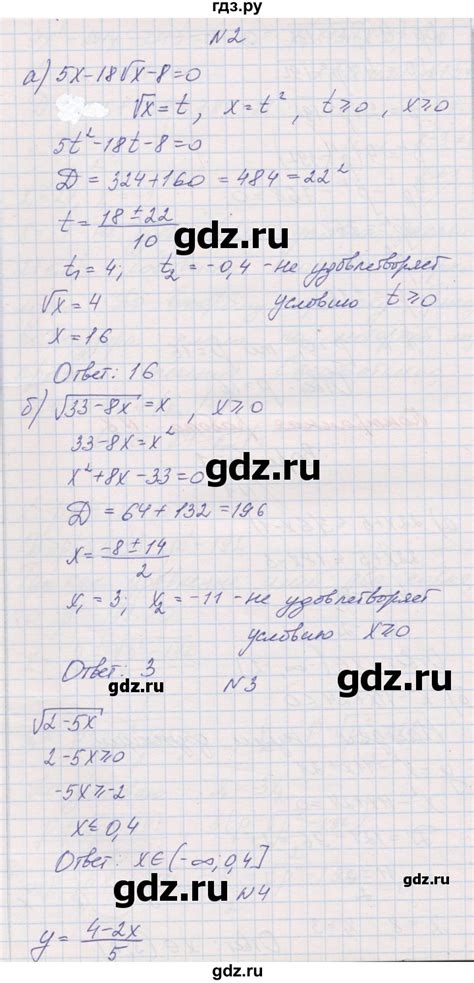 гдз.ру
N2
а) 5x-18√x-8=0
√x=t, x=t², t≥0, x≥0
5t²-18t-8=0
D=324+160=484=22²
t=(18±22)/10
gdz.ru
t₁=4; t₂=-0,4-не удовлетворяет
√x=4 условию t≥0
x=16
Ответ: 16
б) √(33-8x)=x, x≥0
33-8x=x²
x²+8x-33=0
gdz.ru
D=64+132=196
x=(-8±14)/2
x₁=3; x₂=-11-не удовлетворяет
условию x≥0
Ответ: 3
gdz.ru
N3
√(2-5x)
2-5x≥0
-5x≥-2
x≤0,4
Ответ: x∈(-∞;0,4]
gdz.ru
N4
y=(4-2x)/5
gdz.ru